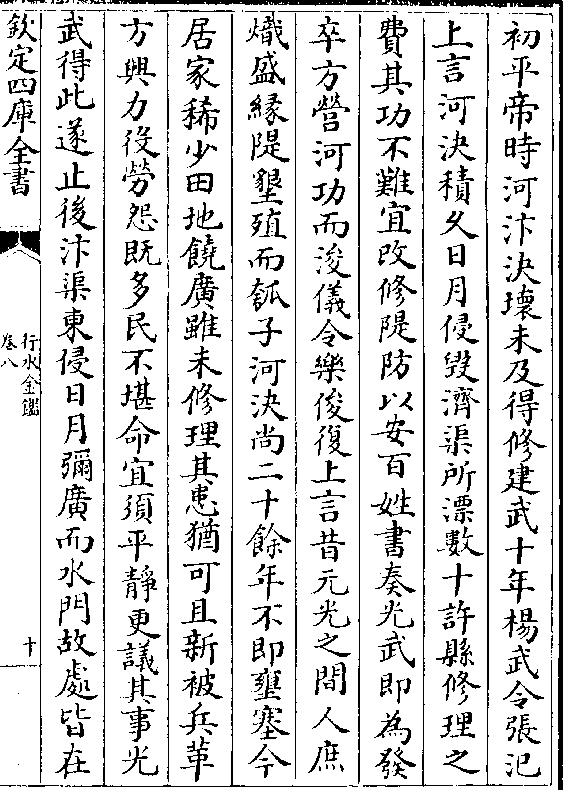 初平帝時河汴決壊未及得修建武十年楊武令張汜
上言河決積久日月侵毁濟渠所漂數十許縣修理之
費其功不難宜改修隄防以安百姓書奏光武即為發
卒方營河功而浚儀令樂俊復上言昔元光之間人庶
熾盛縁隄墾殖而瓠子河決尚二十餘年不即壅塞今
居家稀少田地饒廣雖未修理其患猶可且新被兵革
方興力役勞怨既多民不堪命宜須平靜更議其事光
武得此遂止後汴渠東侵日月彌廣而水門故處皆在
欽定四庫全書
行水金鑑
卷八
十